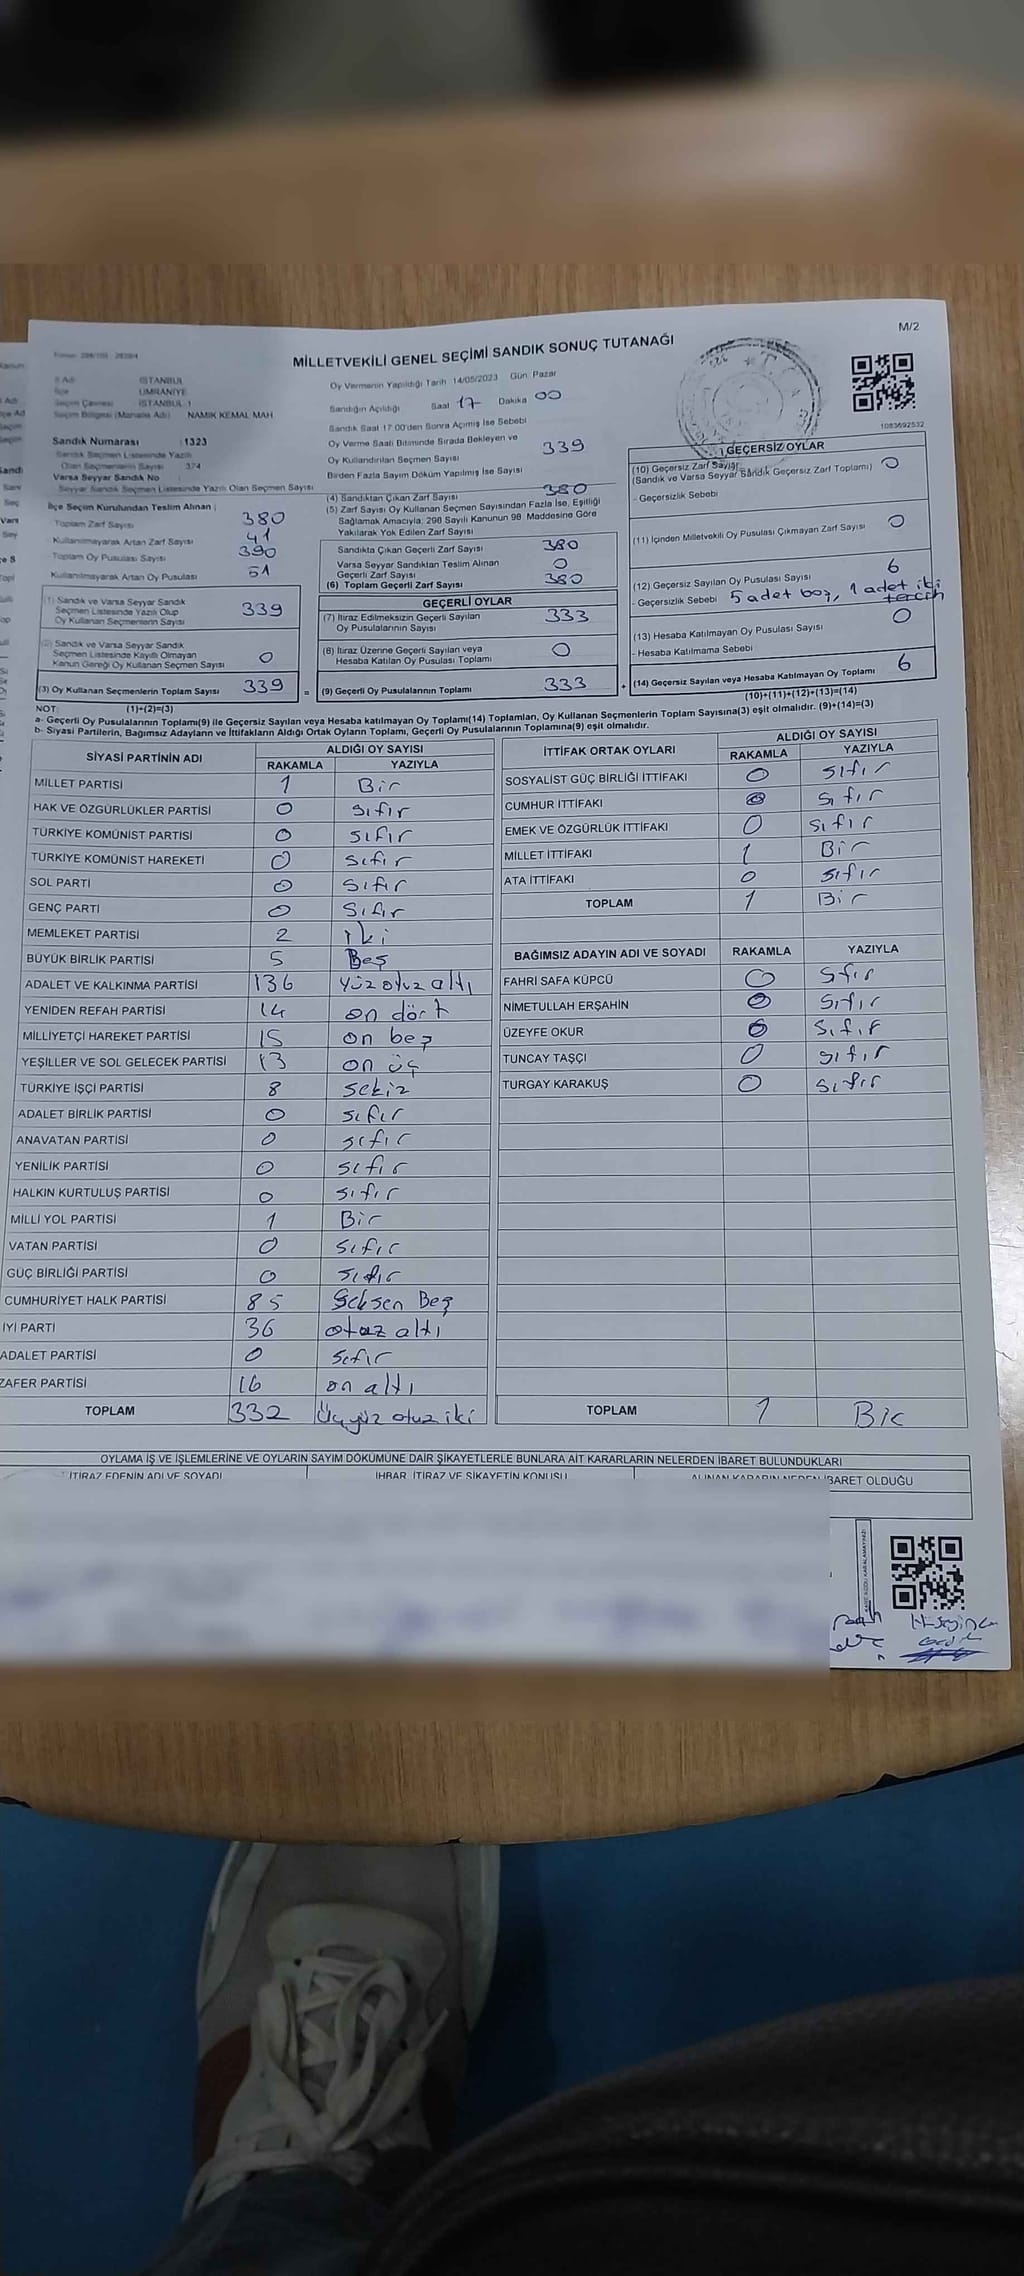 M/2
MİLLETVEKİLİ GENEL SEÇİMİ SANDIK SONUÇ TUTANAĞI
İli Adı İSTANBUL
İlçe ÜMRANİYE
Seçim Çevresi İSTANBUL 1
Seçim Bölgesi (Mahalle Adı) NAMIK KEMAL MAH.
Sandık Numarası :1323
Sandık Seçmen Listesinde Yazılı
Olan Seçmenlerin Sayısı 374
Varsa Seyyar Sandık No
Seyyar Sandık Seçmen Listesinde Yazılı Olan Seçmen Sayısı
İlçe Seçim Kurulundan Teslim Alınan ;
Toplam Zarf Sayısı 380
Kullanılmayarak Artan Zarf Sayısı 41
Toplam Oy Pusulası Sayısı 390
Kullanılmayarak Artan Oy Pusulası 51
(1) Sandık ve Varsa Seyyar Sandık
Seçmen Listesinde Yazılı Olup
Oy Kullanan Seçmenlerin Sayısı 339
(2) Sandık ve Varsa Seyyar Sandık
Seçmen Listesinde Kayıtlı Olmayan
Kanun Gereği Oy Kullanan Seçmen Sayısı 0
(3) Oy Kullanan Seçmenlerin Toplam Sayısı 339
Oy Vermenin Yapıldığı Tarih 14/05/2023 Gün: Pazar
Sandığın Açıldığı Saat 17 Dakika 00
Sandık Saat 17:00'den Sonra Açımış İse Sebebi
Oy Verme Saati Bitiminde Sırada Bekleyen ve
Oy Kullandırılan Seçmen Sayısı 339
Birden Fazla Sayım Döküm Yapılmış İse Sayısı
(4) Sandıktan Çıkan Zarf Sayısı 380
(5) Zarf Sayısı Oy Kullanan Seçmen Sayısından Fazla İse, Eşitliği
Sağlamak Amacıyla; 298 Sayılı Kanunun 98. Maddesine Göre
Yakılarak Yok Edilen Zarf Sayısı
Sandıkta Çıkan Geçerli Zarf Sayısı 380
Varsa Seyyar Sandıktan Teslim Alınan
Geçerli Zarf Sayısı 0
(6) Toplam Geçerli Zarf Sayısı 380
GEÇERLİ OYLAR
(7) İtiraz Edilmeksizin Geçerli Sayılan
Oy Pusulalarının Sayısı 333
(8) İtiraz Üzerine Geçerli Sayılan veya
Hesaba Katılan Oy Pusulası Toplamı 0
= (9) Geçerli Oy Pusulalarının Toplamı 333 +
1083692532
GEÇERSİZ OYLAR
(10) Geçersiz Zarf Sayısı
(Sandık ve Varsa Seyyar Sandık Geçersiz Zarf Toplamı) 0
- Geçersizlik Sebebi
(11) İçinden Milletvekili Oy Pusulası Çıkmayan Zarf Sayısı 0
(12) Geçersiz Sayılan Oy Pusulası Sayısı 6
- Geçersizlik Sebebi 5 adet boş, 1 adet iki tercih
(13) Hesaba Katılmayan Oy Pusulası Sayısı 0
- Hesaba Katılmama Sebebi
(14) Geçersiz Sayılan veya Hesaba Katılmayan Oy Toplamı 6
NOT: (1)+(2)=(3) (10)+(11)+(12)+(13)=(14)
a- Geçerli Oy Pusulalarının Toplamı(9) ile Geçersiz Sayılan veya Hesaba katılmayan Oy Toplamı(14) Toplamları, Oy Kullanan Seçmenlerin Toplam Sayısına(3) eşit olmalıdır. (9)+(14)=(3)
b- Siyasi Partilerin, Bağımsız Adayların ve İttifakların Aldığı Ortak Oyların Toplamı, Geçerli Oy Pusulalarının Toplamına(9) eşit olmalıdır.
SİYASİ PARTİNİN ADI ALDIĞI OY SAYISI
RAKAMLA YAZIYLA
MİLLET PARTİSİ 1 Bir
HAK VE ÖZGÜRLÜKLER PARTİSİ 0 sıfır
TÜRKİYE KOMÜNİST PARTİSİ 0 sıfır
TÜRKİYE KOMÜNİST HAREKETİ 0 sıfır
SOL PARTİ 0 sıfır
GENÇ PARTİ 0 sıfır
MEMLEKET PARTİSİ 2 iki
BÜYÜK BİRLİK PARTİSİ 5 Beş
ADALET VE KALKINMA PARTİSİ 136 yüz otuz altı
YENİDEN REFAH PARTİSİ 14 on dört
MİLLİYETÇİ HAREKET PARTİSİ 15 on beş
YEŞİLLER VE SOL GELECEK PARTİSİ 13 on üç
TÜRKİYE İŞÇİ PARTİSİ 8 sekiz
ADALET BİRLİK PARTİSİ 0 sıfır
ANAVATAN PARTİSİ 0 sıfır
YENİLİK PARTİSİ 0 sıfır
HALKIN KURTULUŞ PARTİSİ 0 sıfır
MİLLİ YOL PARTİSİ 1 Bir
VATAN PARTİSİ 0 sıfır
GÜÇ BİRLİĞİ PARTİSİ 0 sıfır
CUMHURİYET HALK PARTİSİ 85 Seksen Beş
İYİ PARTİ 36 otuz altı
ADALET PARTİSİ 0 sıfır
ZAFER PARTİSİ 16 on altı
TOPLAM 332 Üçyüz otuz iki
İTTİFAK ORTAK OYLARI ALDIĞI OY SAYISI
RAKAMLA YAZIYLA
SOSYALİST GÜÇ BİRLİĞİ İTTİFAKI 0 sıfır
CUMHUR İTTİFAKI 0 sıfır
EMEK VE ÖZGÜRLÜK İTTİFAKI 0 sıfır
MİLLET İTTİFAKI 1 Bir
ATA İTTİFAKI 0 sıfır
TOPLAM 1 Bir
BAĞIMSIZ ADAYIN ADI VE SOYADI RAKAMLA YAZIYLA
FAHRİ SAFA KÜPCÜ 0 sıfır
NİMETULLAH ERŞAHİN 0 sıfır
ÜZEYFE OKUR 0 sıfır
TUNCAY TAŞÇI 0 sıfır
TURGAY KARAKUŞ 0 sıfır
TOPLAM 1 Bir
OYLAMA İŞ VE İŞLEMLERİNE VE OYLARIN SAYIM DÖKÜMÜNE DAİR ŞİKAYETLERLE BUNLARA AİT KARARLARIN NELERDEN İBARET BULUNDUKLARI
İTİRAZ EDENİN ADI VE SOYADI İHBAR, İTİRAZ VE ŞİKAYETİN KONUSU ALINAN KARARIN NEDEN İBARET OLDUĞU